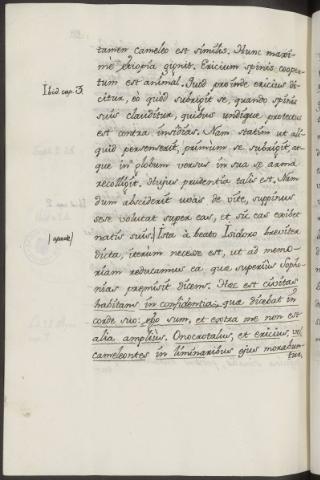 tamen cameleo est similis. Hunc maxi-
me etiopia gignit. Ericium spinis cooper-
tum est animal. Quid proinde ericius di-
Ibid. cap. 3.
citur, eò quòd subrigit se, quando spinis
suis clauditur, quibus undique protectus
est contra insidias. Nam statim ut ali-
quid persenserit, primium se subrigit, at-
que in globum versus in sua se arma
recolligit. Hujus prudentia talis est. Nam
dum absciderit uvas de vite, suppinus
sese volutat super eas, et sic eas exibet
natis suis.] Ista à beato Isidoro breviter
[aparte]
dicta, iterum necesse est, ut ad memo-
riam reducamus ea quæ superiùs Sopho-
nias premisit dicens. Hæc est civitas
habitans in confidentia, quæ dicebat in
corde suo: ego sum, et extra me non est
alia ampliùs. Onocrotalus, et ericius, vel
cameleontes in liminaribus ejus morabun-
tur,